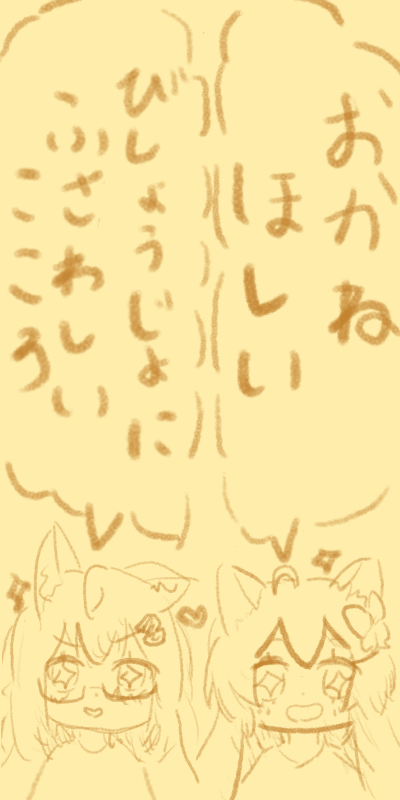 おかね
ほしい
びしょうじょに
ふさわしい
こころ